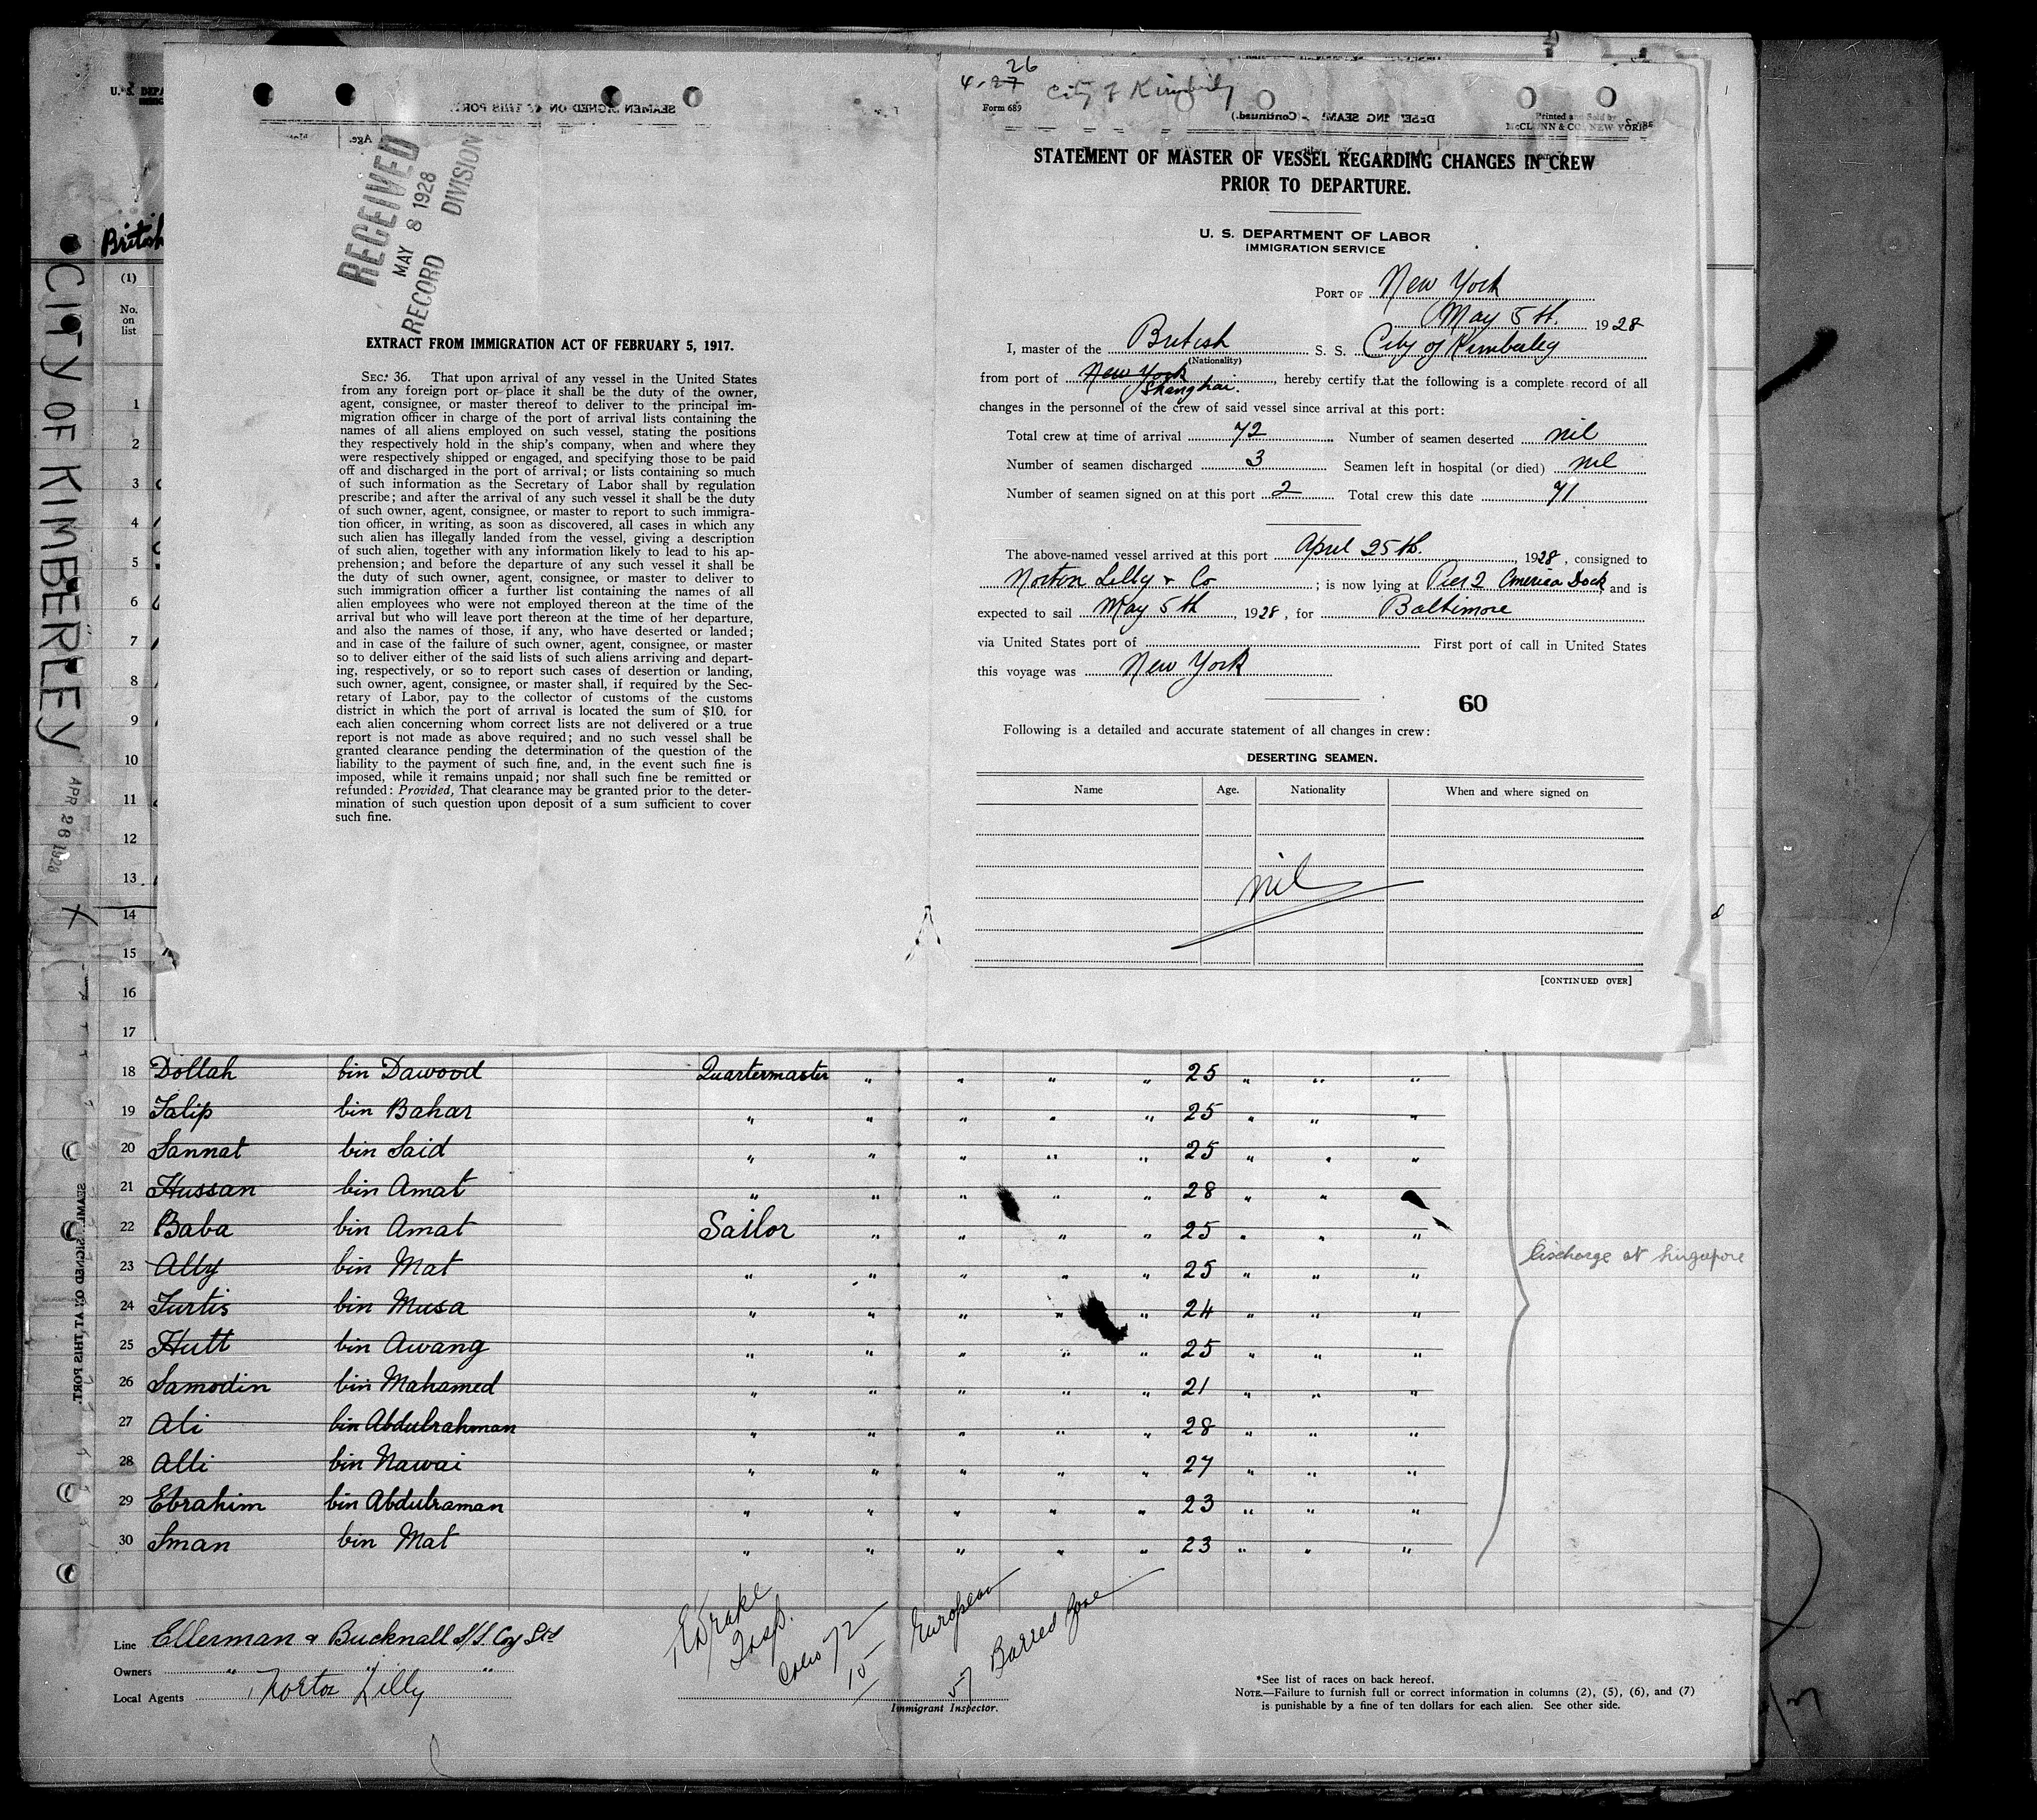 26
4-27 City of Kimberly
Form 689
Printed and Sold by
McCLUNN & CO., NEW YORK
SEAMEN SIGNED ON AT THIS PORT.
DESERTING SEAMEN—(Continued.)
RECEIVED
MAY 8 1928
RECORD DIVISION
EXTRACT FROM IMMIGRATION ACT OF FEBRUARY 5, 1917.
SEC. 36. That upon arrival of any vessel in the United States
from any foreign port or place it shall be the duty of the owner,
agent, consignee, or master thereof to deliver to the principal im-
migration officer in charge of the port of arrival lists containing the
names of all aliens employed on such vessel, stating the positions
they respectively hold in the ship's company, when and where they
were respectively shipped or engaged, and specifying those to be paid
off and discharged in the port of arrival; or lists containing so much
of such information as the Secretary of Labor shall by regulation
prescribe; and after the arrival of any such vessel it shall be the duty
of such owner, agent, consignee, or master to report to such immigra-
tion officer, in writing, as soon as discovered, all cases in which any
such alien has illegally landed from the vessel, giving a description
of such alien, together with any information likely to lead to his ap-
prehension; and before the departure of any such vessel it shall be
the duty of such owner, agent, consignee, or master to deliver to
such immigration officer a further list containing the names of all
alien employees who were not employed thereon at the time of the
arrival but who will leave port thereon at the time of her departure,
and also the names of those, if any, who have deserted or landed;
and in case of the failure of such owner, agent, consignee, or master
so to deliver either of the said lists of such aliens arriving and depart-
ing, respectively, or so to report such cases of desertion or landing,
such owner, agent, consignee, or master shall, if required by the Sec-
retary of Labor, pay to the collector of customs of the customs
district in which the port of arrival is located the sum of $10. for
each alien concerning whom correct lists are not delivered or a true
report is not made as above required; and no such vessel shall be
granted clearance pending the determination of the question of the
liability to the payment of such fine, and, in the event such fine is
imposed, while it remains unpaid; nor shall such fine be remitted or
refunded: Provided, That clearance may be granted prior to the deter-
mination of such question upon deposit of a sum sufficient to cover
such fine.
STATEMENT OF MASTER OF VESSEL REGARDING CHANGES IN CREW
PRIOR TO DEPARTURE.
U. S. DEPARTMENT OF LABOR
IMMIGRATION SERVICE
PORT OF New York
May 5th. 1928
I, master of the British S. S. City of Kimberley
(Nationality)
from port of New York Shanghai., hereby certify that the following is a complete record of all
changes in the personnel of the crew of said vessel since arrival at this port:
Total crew at time of arrival 72 Number of seamen deserted nil
Number of seamen discharged 3 Seamen left in hospital (or died) nil
Number of seamen signed on at this port 2 Total crew this date 71
The above-named vessel arrived at this port April 25th. , 1928 , consigned to
Norton Lilly & Co ; is now lying at Pier 2 America Dock and is
expected to sail May 5th , 1928 , for Baltimore
via United States port of First port of call in United States
this voyage was New York
60
Following is a detailed and accurate statement of all changes in crew:
DESERTING SEAMEN.
Name Age. Nationality When and where signed on
nil
[CONTINUED OVER]
U. S. DEPA
British
CITY OF KIMBERLEY
APR 26 1928
X
(1)
No.
on
list
1
2
3
4
5
6
7
8
9
10
11
12
13
14
15
16
17
18 Dollah bin Dawood Quartermaster " " " " 25 " " "
19 Talip bin Bahar " " " " " 25 " " "
20 Sannat bin Said " " " " " 25 " " "
21 Hussan bin Amat " " " " " 28 " "
22 Baba bin Amat Sailor " " " " 25 " " "
23 Ally bin Mat " " " " " 25 " " "
24 Turtis bin Musa " " " " " 24 " " "
25 Hutt bin Awang " " " " " 25 " " "
26 Samodin bin Mahamed " " " " " 21 " " "
27 Ali bin Abdulrahman " " " " " 28 " " "
28 Alli bin Nawai " " " " " 27 " " "
29 Ebrahim bin Abdulraman " " " " " 23 " " "
30 Sman bin Mat " " " " " 23 " " "
Discharge at Singapore
SEAMEN SIGNED ON AT THIS PORT.
Line Ellerman & Bucknall S/S. Coy Ltd
Owners " " "
Local Agents Norton Lilly
Drake
Insp.
72
15 European
57 Barred Zone
Immigrant Inspector.
*See list of races on back hereof.
NOTE.—Failure to furnish full or correct information in columns (2), (5), (6), and (7)
is punishable by a fine of ten dollars for each alien. See other side.